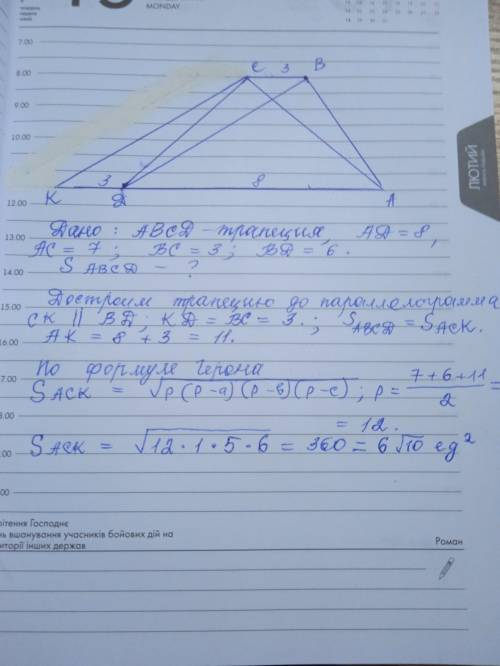 MONDAY
7.00
8.00
9.00
10.00
12.00
13.00
14.00
15.00
16.00
17.00
ЛЮТИЙ
C 3 B
K 3 Д 8 A
Дано: ABCД-трапеция, AД=8,
AC=7; BC=3; BД=6.
S ABCД - ?
Достроим трапецию до параллелограмма
CK || BД; KД=BC=3.; SABCД=SACK.
AK = 8+3 = 11.
По формуле Герона
SACK = √p(p-a)(p-b)(p-c); p = 7+6+11/2 =
= 12.
SACK = √12·1·5·6 = 360 = 6√10 ед²
рітення Господнє
нь вшанування учасників бойових дій на
иторії інших держав
Роман